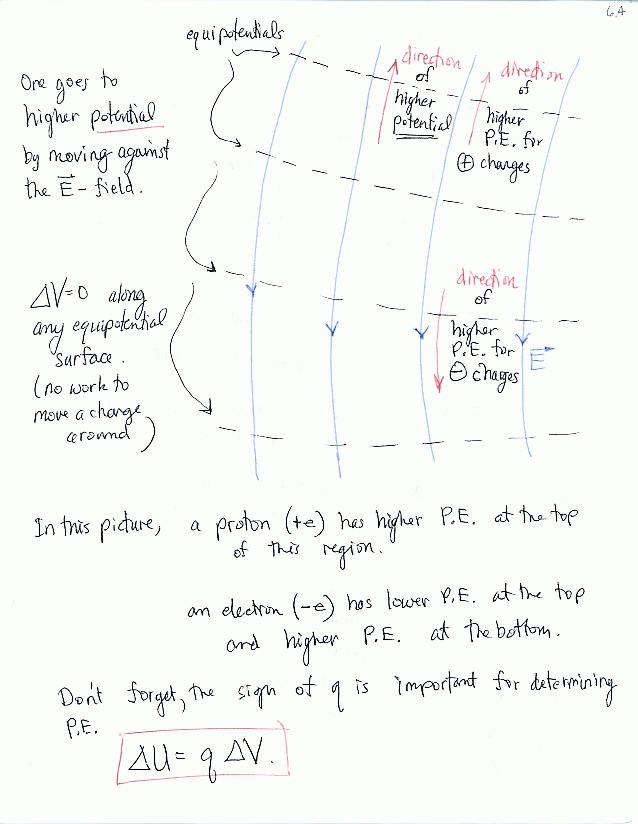 6.4
equipotentials
One goes to
higher potential
by moving against
the E - field.
direction
of
higher
potential
direction
of
higher
P.E. for
⊕ charges
ΔV=0 along
any equipotential
surface.
(no work to
move a charge
around)
direction
of
higher
P.E. for
⊖ charges
E
In this picture, a proton (+e) has higher P.E. at the top
of this region.
an electron (-e) has lower P.E. at the top
and higher P.E. at the bottom.
Don't forget, the sign of q is important for determining
P.E.
ΔU = q ΔV.